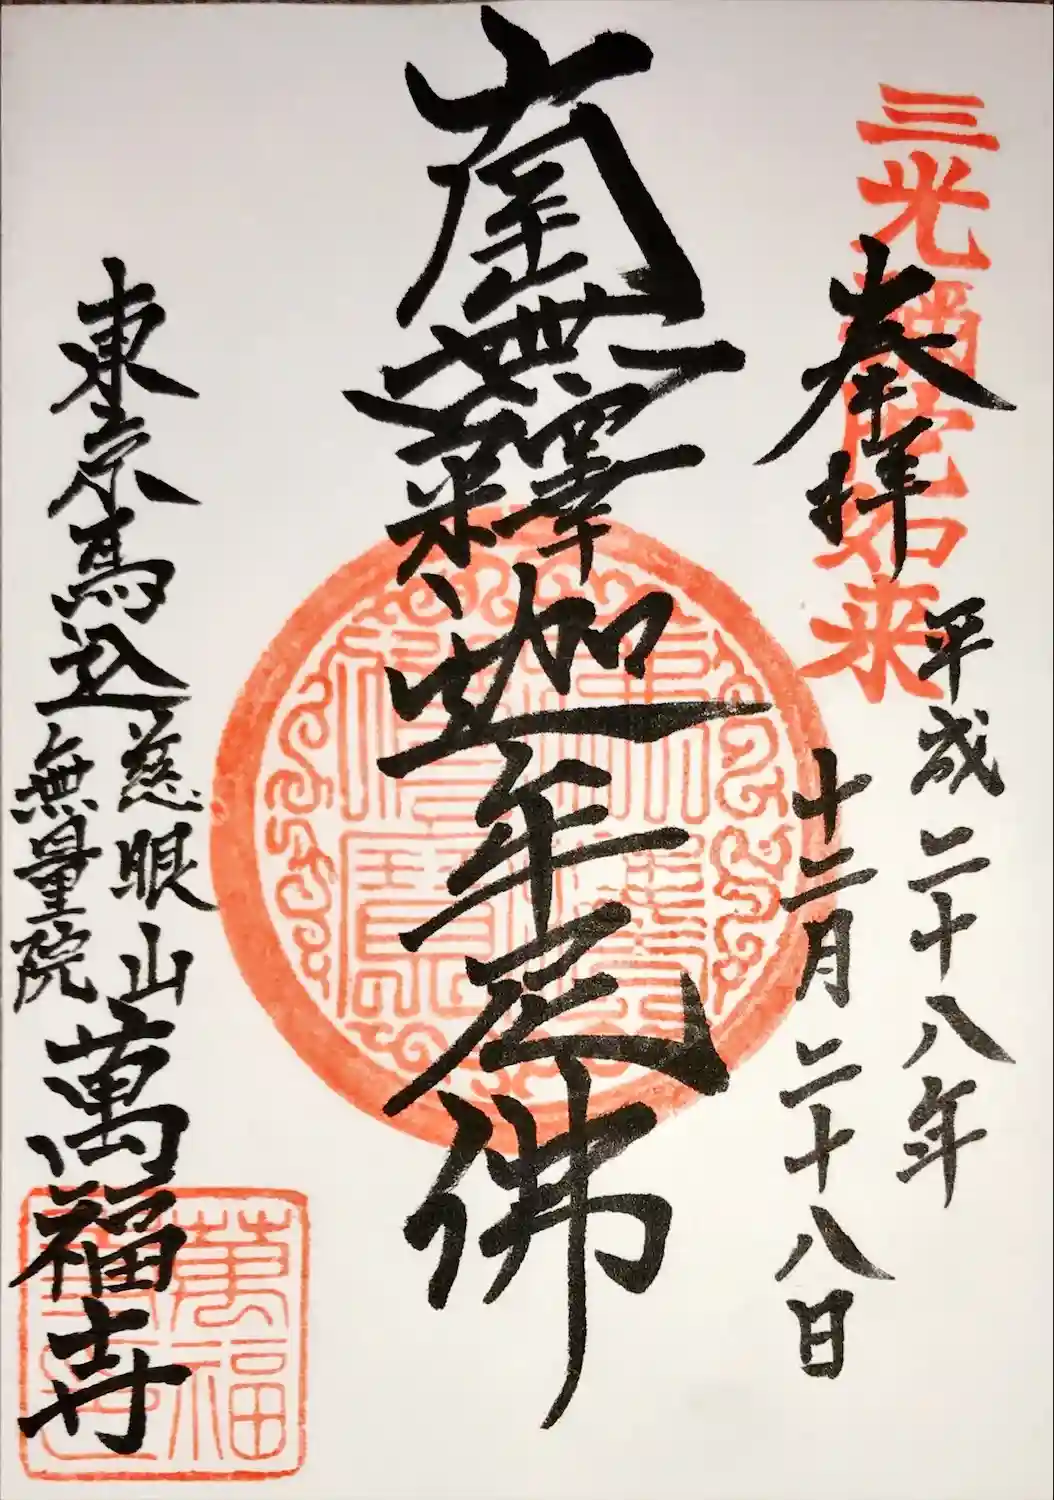 三光彌陀如来
奉拝
平成二十八年
十二月二十八日
南無釋迦牟尼佛
東京馬込
慈眼山
無量院
萬福寺
萬福